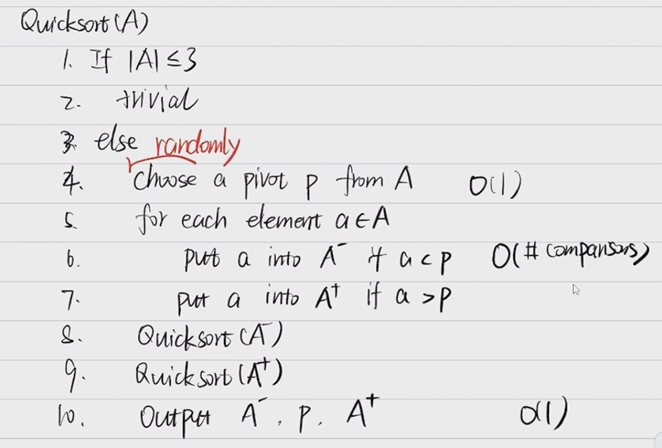 Quicksort (A)
1. If |A| ≤ 3
2. trivial
3. else randomly
4. choose a pivot p from A O(1)
5. for each element a ∈ A
6. put a into A⁻ if a < p O(# comparisons)
7. put a into A⁺ if a > p
8. Quicksort (A⁻)
9. Quicksort (A⁺)
10. Output A⁻, p, A⁺ O(1)